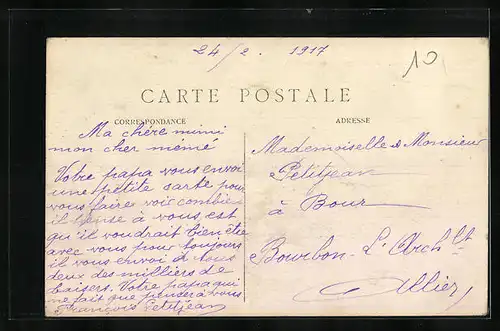 24/2 1917
10
CARTE POSTALE
CORRESPONDANCE
ADRESSE
Ma chère mimi
mon cher mémé
Votre papa vous envoi
une petite carte pour
vous faire voir combien
il pense à vous, est
qu'il voudrait bien être
avec vous pour toujours
il vous envoi à tous
deux des milliers de
baisers. Votre papa qui
ne fait que penser à vous
François Petitjean
Mademoiselle & Monsieur
Petitjean
à Bour
Bourbon-L'Arch
Allier